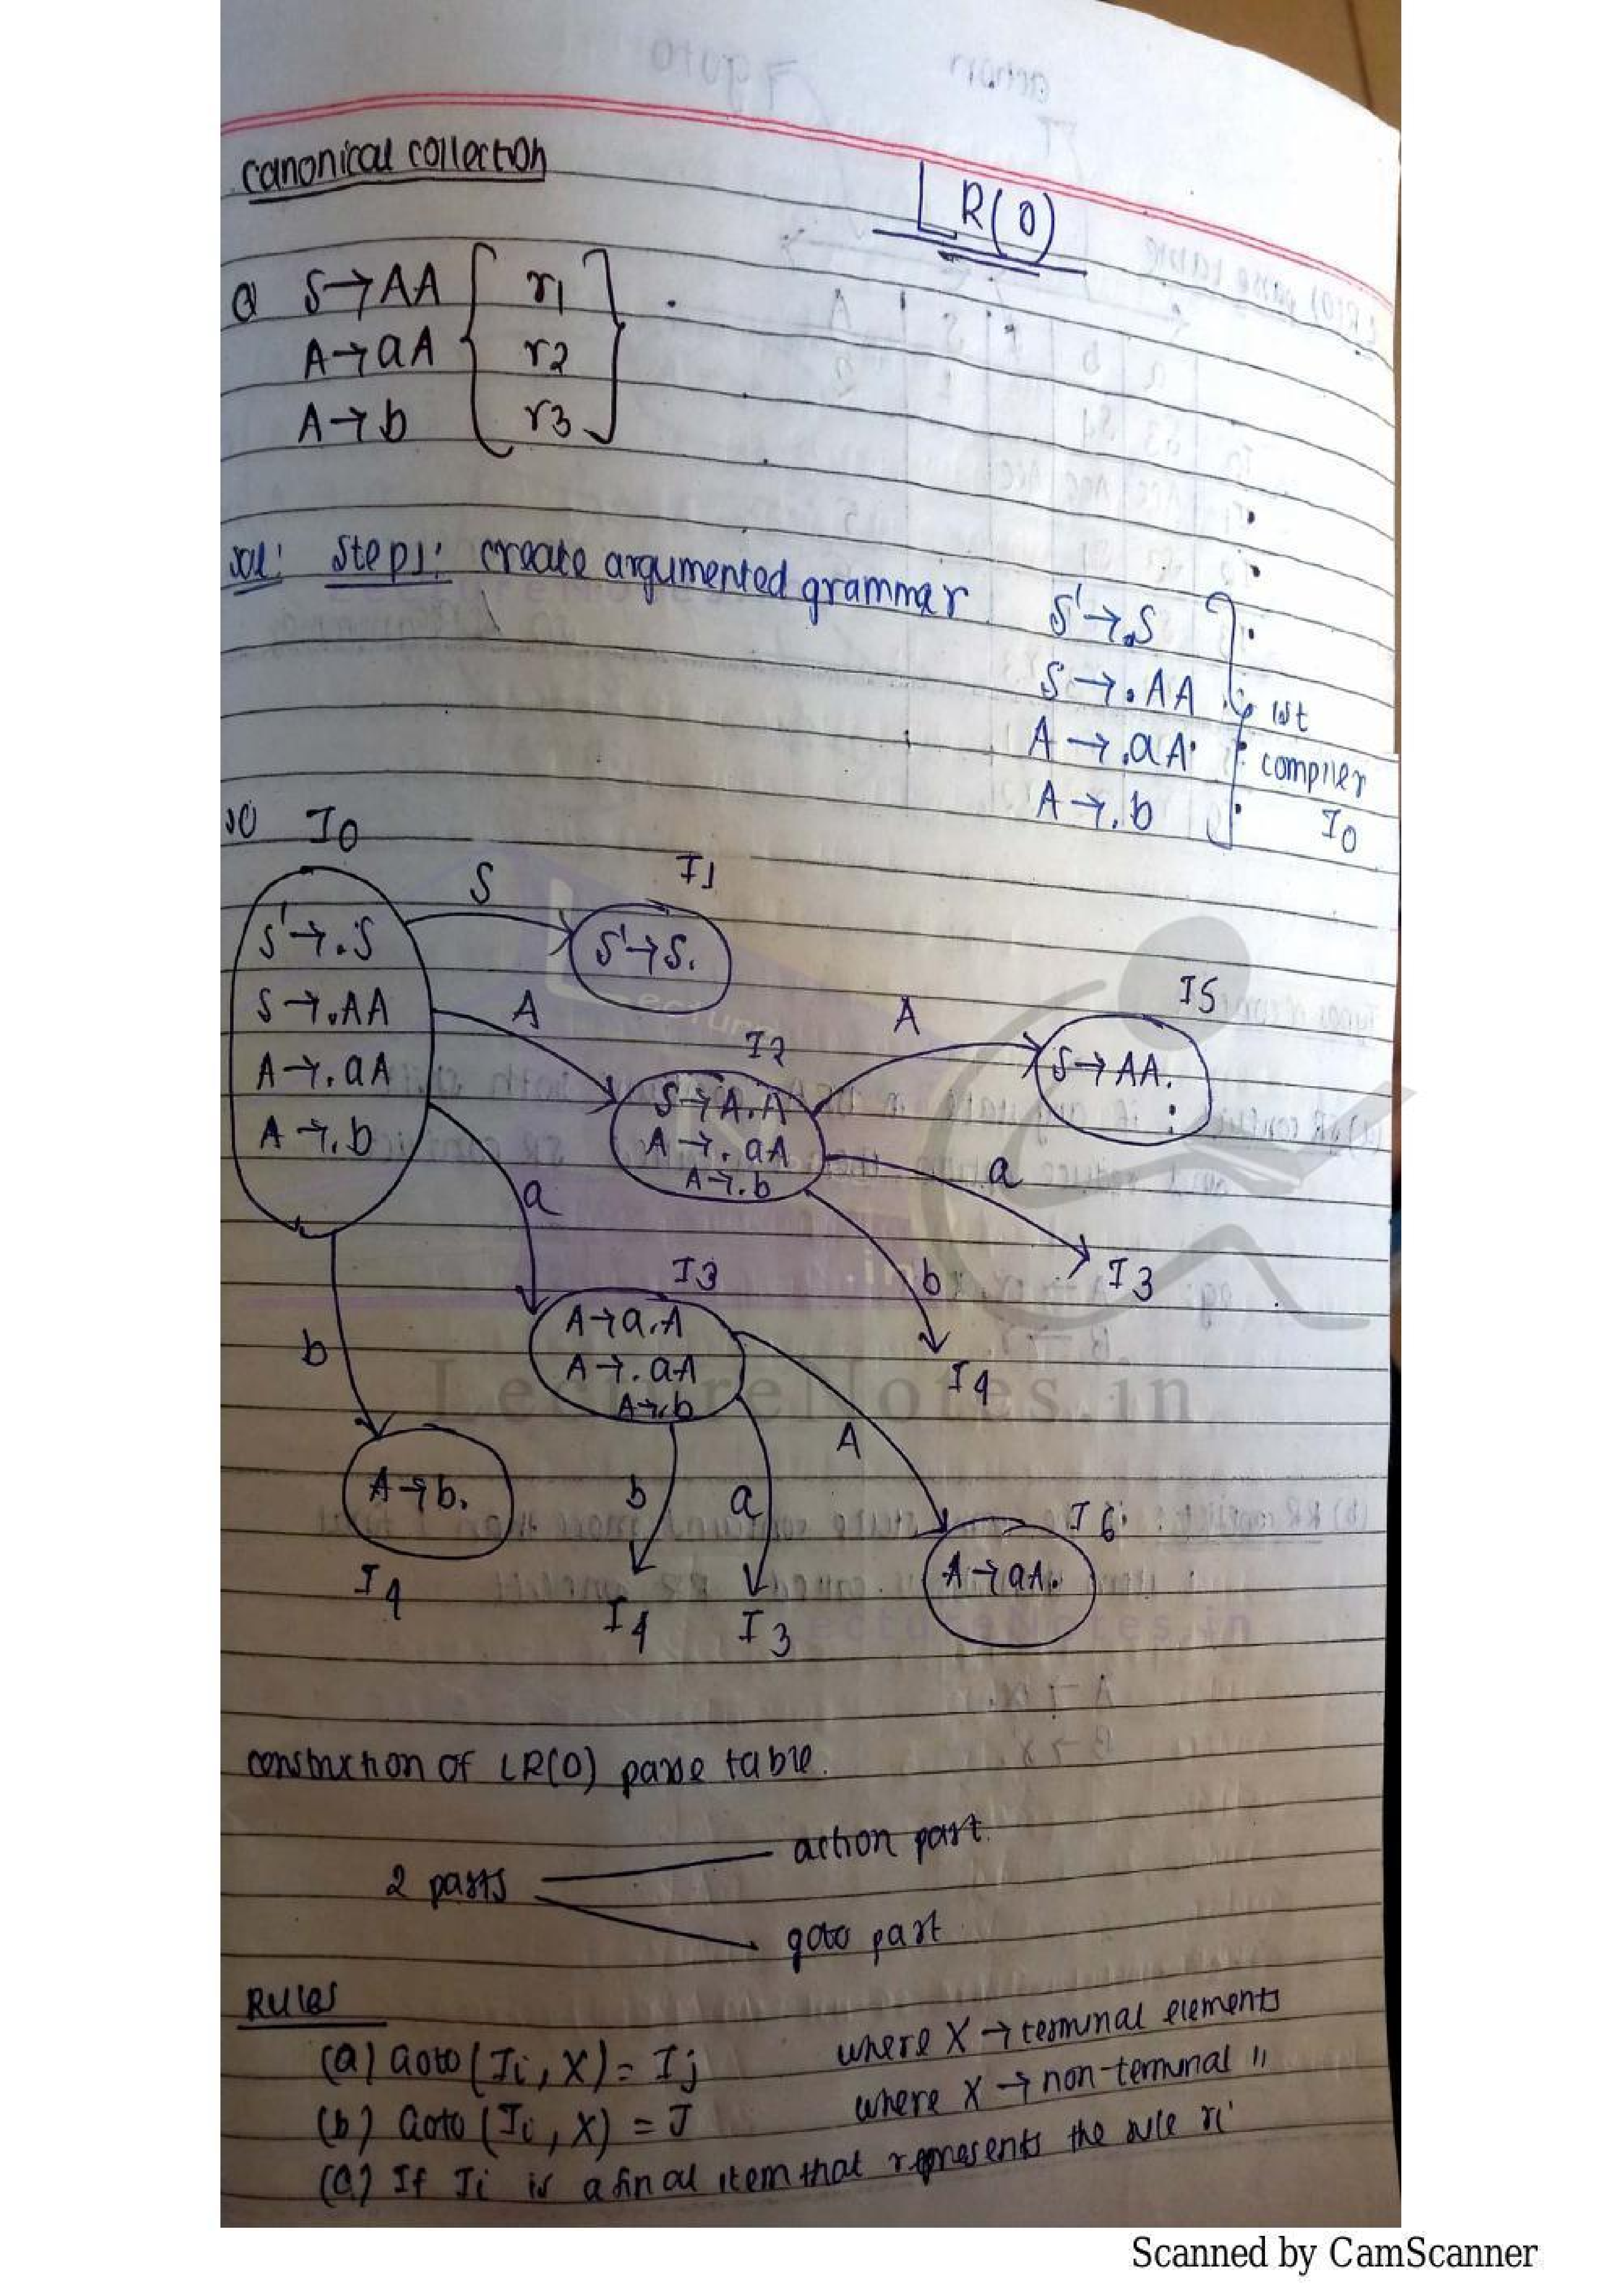 canonical collection
LR(0)
Q S→AA r1
A→aA r2
A→b r3
sol: Step1: create argumented grammar
S'→.S
S→.AA
A→.aA
A→.b
1st
compiler
I0
I0
S'→.S
S→.AA
A→.aA
A→.b
S
I1
S'→S.
A
I2
S→A.A
A→.aA
A→.b
A
I5
S→AA.
a
I3
b
I4
a
I3
A→a.A
A→.aA
A→.b
b
A→b.
I4
b
I4
a
I3
A
I6
A→aA.
construction of LR(0) parse table.
2 parts
action part
goto part
Rules
(a) Goto(Ii, X) = Ij where X → terminal elements
(b) Goto (Ii, X) = J where X → non-terminal "
(c) If Ii is a final item that represents the rule ri
LectureNotes.in
LectureNotes.in
Scanned by CamScanner